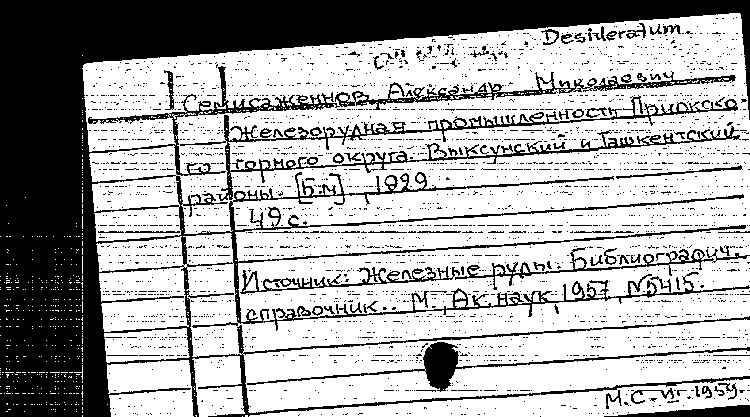 Desideratum.
Семисаженнов, Александр Николаевич
Железорудная промышленность Приокско-
го горного округа. Выксунский и Ташкентский
районы. [Б.м], 1929.
49 с.
Источник: Железные руды. Библиографич.
справочник.. М., Ак.наук, 1957, №5415.
М.С. 1959.